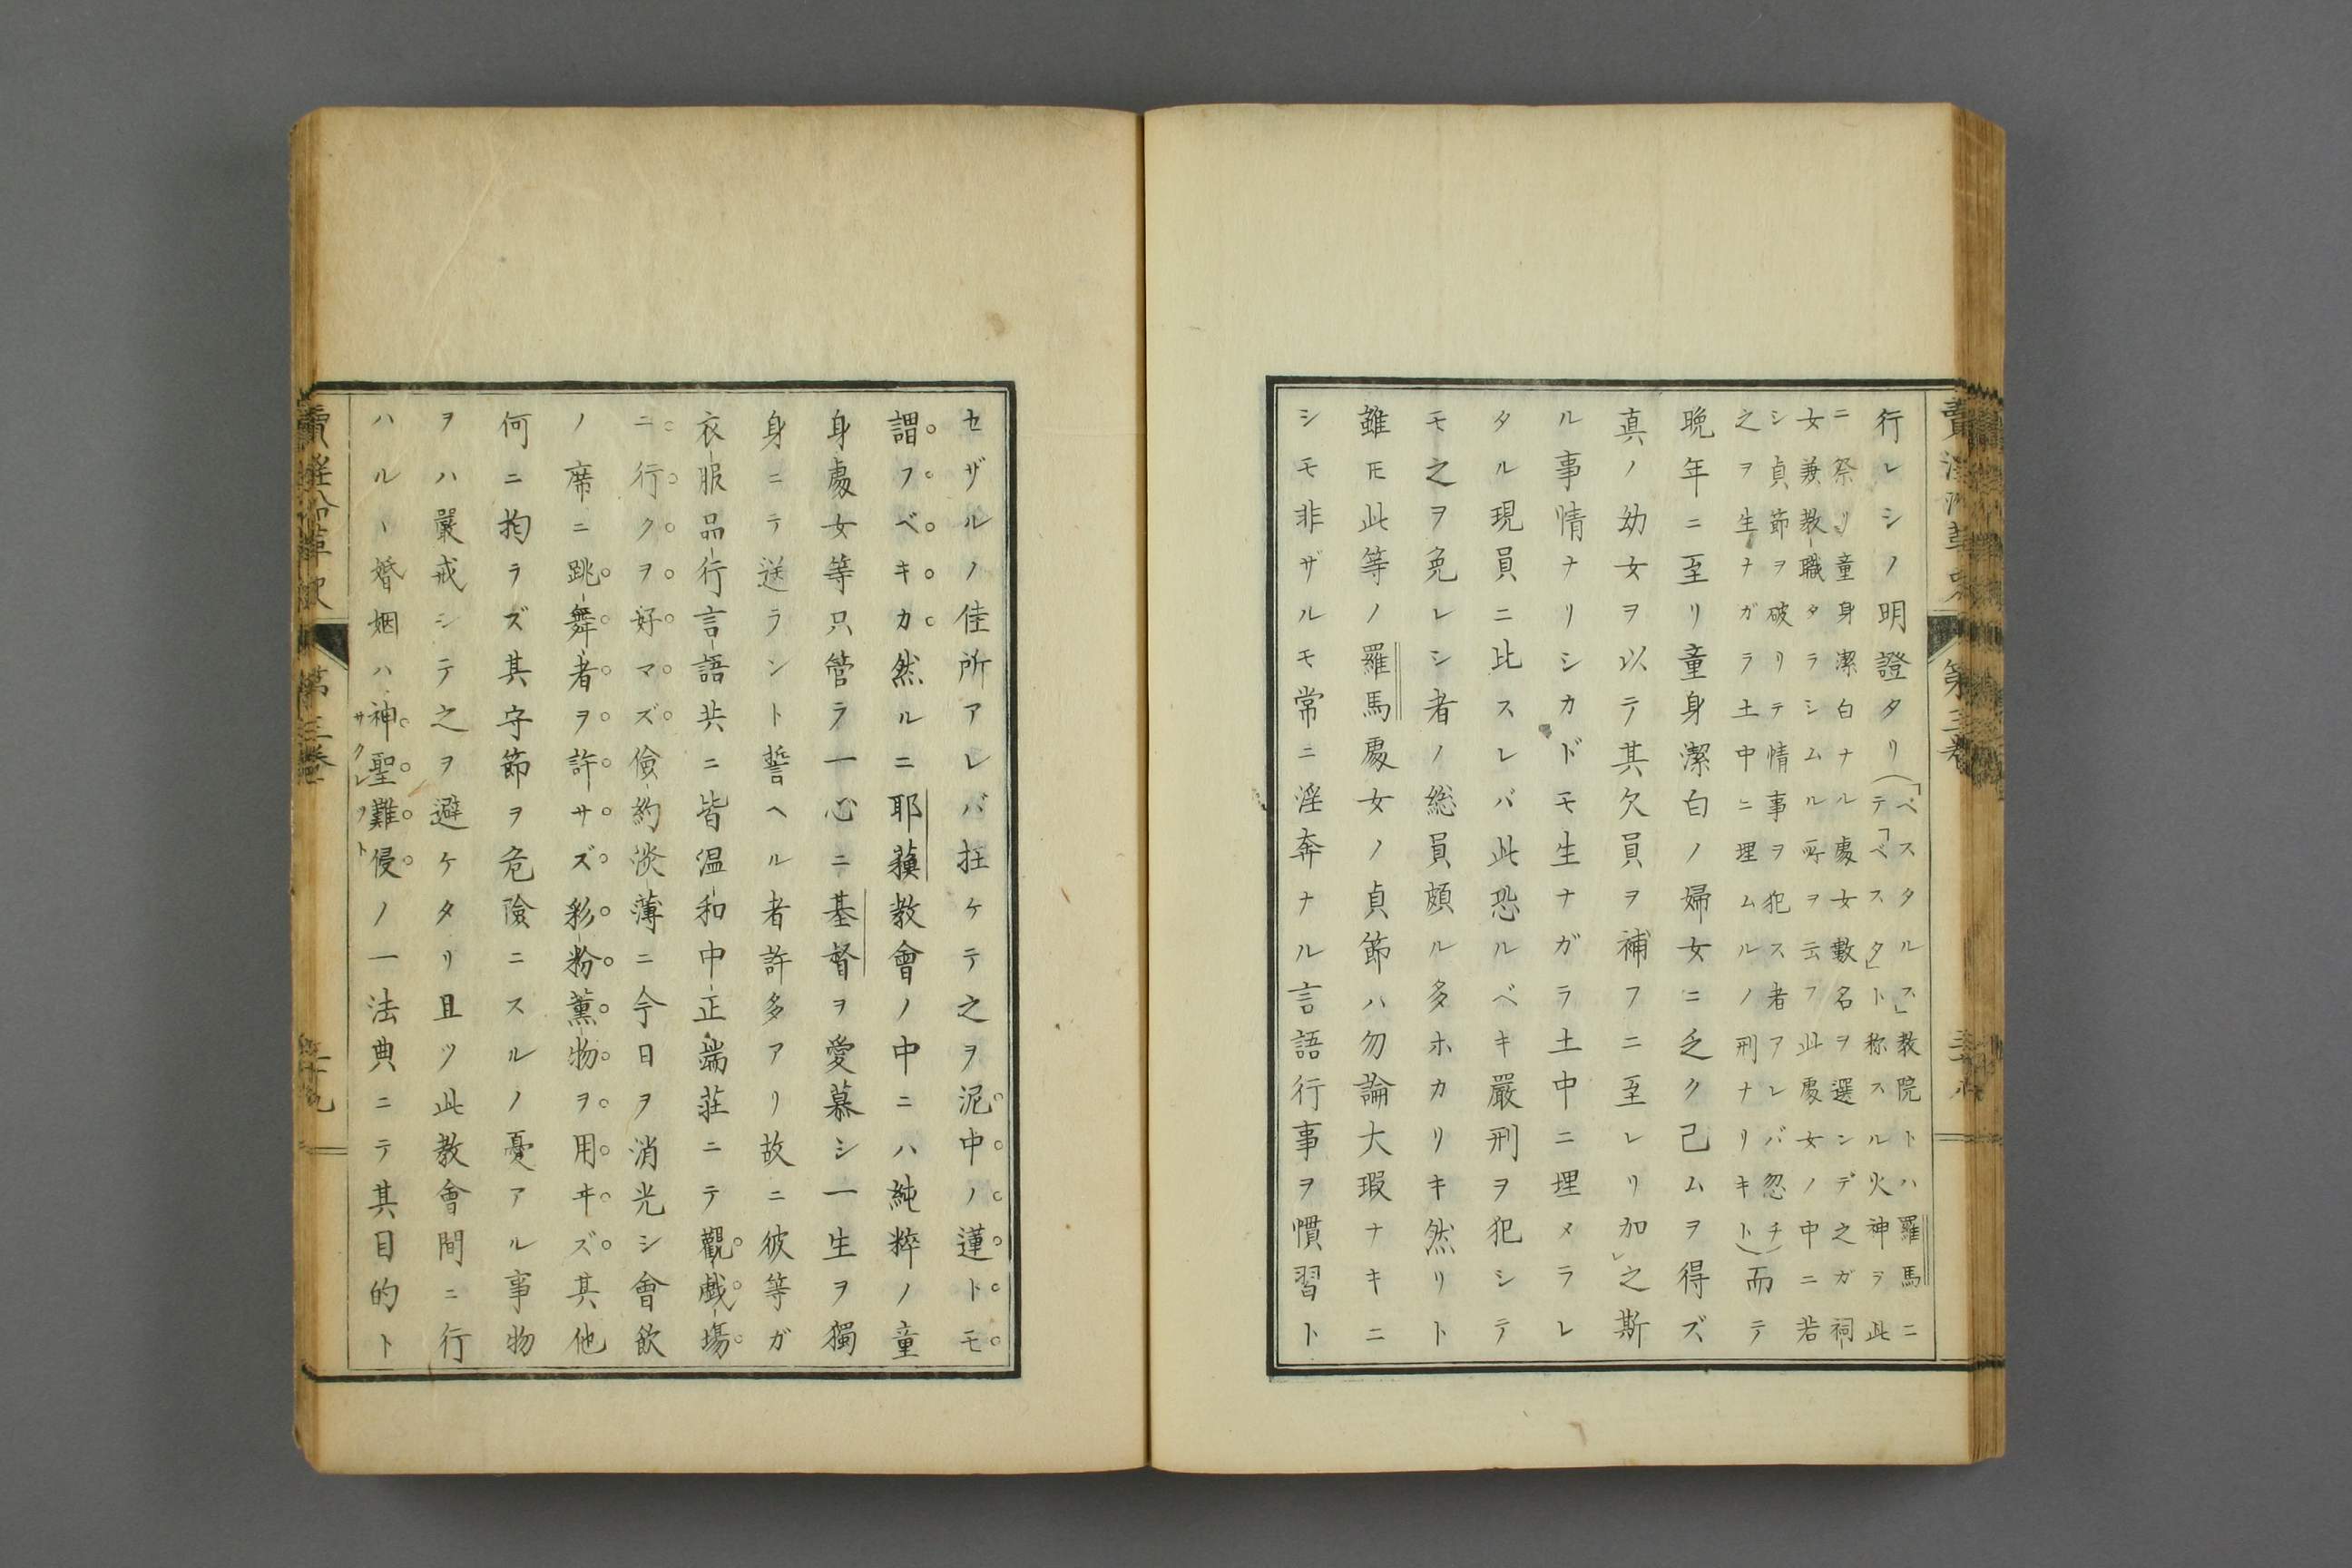 行レシノ明證タリ(「ベスタルス」教院トハ羅馬ニ
テ「ベスタ」ト称スル火神ヲ此
ニ祭リ童身潔白ナル處女數名ヲ選ンデ之ガ祠
女兼教職タラシムル所ヲ云フ此處女ノ中ニ若
シ貞節ヲ破リテ情事ヲ犯ス者アレバ忽チ
之ヲ生ナガラ土中ニ埋ムルノ刑ナリキト)而テ
晩年ニ至リ童身潔白ノ婦女ニ乏ク己ムヲ得ズ
真ノ幼女ヲ以テ其欠員ヲ補フニ至レリ加レ之斯
ル事情ナリシカドモ生ナガラ土中ニ埋メラレ
タル現員ニ比スレバ此恐ルベキ嚴刑ヲ犯シテ
モ之ヲ免レシ者ノ総員頗ル多ホカリキ然リト
雖𪜈此等ノ羅馬處女ノ貞節ハ勿論大瑕ナキニ
シモ非ザルモ常ニ淫奔ナル言語行事ヲ慣習ト
セザルノ佳所アレバ抂ケテ之ヲ泥中ノ蓮トモ
謂フベキカ然ルニ耶蘓教會ノ中ニハ純粹ノ童
身處女等只管ラ一心ニ基督ヲ愛慕シ一生ヲ獨
身ニテ送ラント誓ヘル者許多アリ故ニ彼等ガ
衣服品行言語共ニ皆温和中正端荘ニテ觀戯場
ニ行クヲ好マズ儉約淡薄ニ今日ヲ消光シ會飲
ノ席ニ跳舞者ヲ許サズ彩粉薫物ヲ用ヰズ其他
何ニ拘ラズ其守節ヲ危險ニスルノ憂アル事物
ヲハ嚴戒シテ之ヲ避ケタリ且ツ此教會間ニ行
ハルヽ婚姻ハ神聖難侵ノ一法典ニテ其目的ト
賣淫沿革史 第三巻